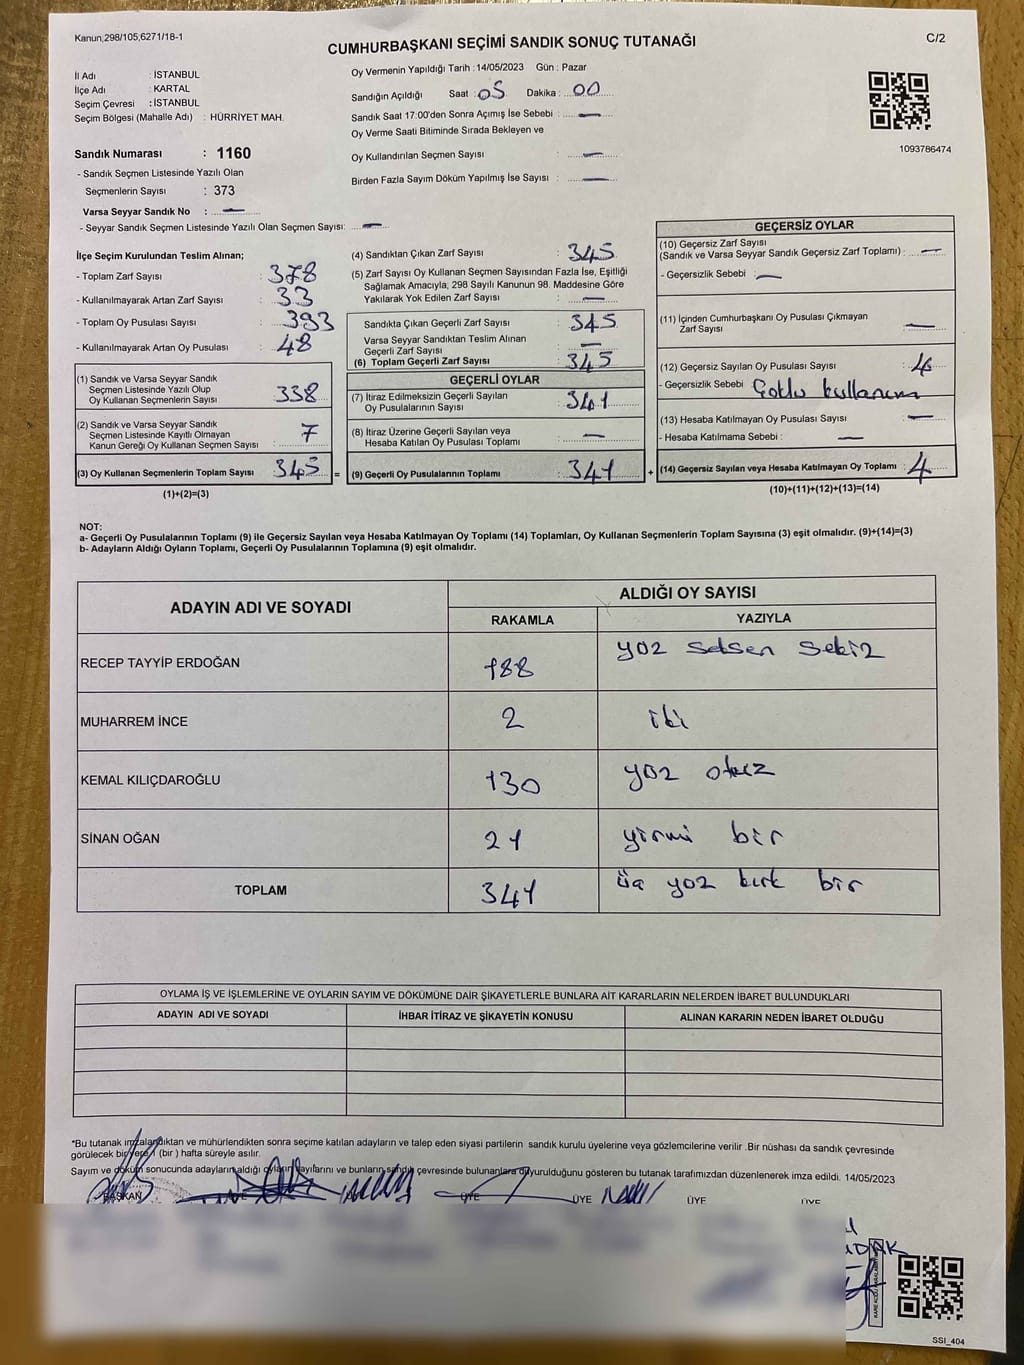 Kanun,298/105,6271/18-1
CUMHURBAŞKANI SEÇİMİ SANDIK SONUÇ TUTANAĞI
C/2
İl Adı : İSTANBUL
İlçe Adı : KARTAL
Seçim Çevresi : İSTANBUL
Seçim Bölgesi (Mahalle Adı) : HÜRRİYET MAH.
Oy Vermenin Yapıldığı Tarih : 14/05/2023 Gün : Pazar
Sandığın Açıldığı Saat : 05 Dakika : 00
Sandık Saat 17:00'den Sonra Açımış İse Sebebi : —
Oy Verme Saati Bitiminde Sırada Bekleyen ve
Oy Kullandırılan Seçmen Sayısı : —
Birden Fazla Sayım Döküm Yapılmış İse Sayısı : —
1093786474
Sandık Numarası : 1160
- Sandık Seçmen Listesinde Yazılı Olan
Seçmenlerin Sayısı : 373
Varsa Seyyar Sandık No : —
- Seyyar Sandık Seçmen Listesinde Yazılı Olan Seçmen Sayısı: —
İlçe Seçim Kurulundan Teslim Alınan;
- Toplam Zarf Sayısı : 378
- Kullanılmayarak Artan Zarf Sayısı : 33
- Toplam Oy Pusulası Sayısı : 393
- Kullanılmayarak Artan Oy Pusulası : 48
(1) Sandık ve Varsa Seyyar Sandık
Seçmen Listesinde Yazılı Olup
Oy Kullanan Seçmenlerin Sayısı : 338
(2) Sandık ve Varsa Seyyar Sandık
Seçmen Listesinde Kayıtlı Olmayan
Kanun Gereği Oy Kullanan Seçmen Sayısı : 7
(3) Oy Kullanan Seçmenlerin Toplam Sayısı : 345 =
(1)+(2)=(3)
(4) Sandıktan Çıkan Zarf Sayısı : 345
(5) Zarf Sayısı Oy Kullanan Seçmen Sayısından Fazla İse, Eşitliği
Sağlamak Amacıyla, 298 Sayılı Kanunun 98. Maddesine Göre
Yakılarak Yok Edilen Zarf Sayısı : —
Sandıkta Çıkan Geçerli Zarf Sayısı : 345
Varsa Seyyar Sandıktan Teslim Alınan
Geçerli Zarf Sayısı : —
(6) Toplam Geçerli Zarf Sayısı : 345
GEÇERLİ OYLAR
(7) İtiraz Edilmeksizin Geçerli Sayılan
Oy Pusulalarının Sayısı : 341
(8) İtiraz Üzerine Geçerli Sayılan veya
Hesaba Katılan Oy Pusulası Toplamı : —
(9) Geçerli Oy Pusulalarının Toplamı : 341 +
GEÇERSİZ OYLAR
(10) Geçersiz Zarf Sayısı
(Sandık ve Varsa Seyyar Sandık Geçersiz Zarf Toplamı) : —
- Geçersizlik Sebebi : —
(11) İçinden Cumhurbaşkanı Oy Pusulası Çıkmayan
Zarf Sayısı : —
(12) Geçersiz Sayılan Oy Pusulası Sayısı : 4
- Geçersizlik Sebebi : Çoklu kullanım
(13) Hesaba Katılmayan Oy Pusulası Sayısı : —
- Hesaba Katılmama Sebebi : —
(14) Geçersiz Sayılan veya Hesaba Katılmayan Oy Toplamı : 4
(10)+(11)+(12)+(13)=(14)
NOT:
a- Geçerli Oy Pusulalarının Toplamı (9) ile Geçersiz Sayılan veya Hesaba Katılmayan Oy Toplamı (14) Toplamları, Oy Kullanan Seçmenlerin Toplam Sayısına (3) eşit olmalıdır. (9)+(14)=(3)
b- Adayların Aldığı Oyların Toplamı, Geçerli Oy Pusulalarının Toplamına (9) eşit olmalıdır.
ADAYIN ADI VE SOYADI
ALDIĞI OY SAYISI
RAKAMLA YAZIYLA
RECEP TAYYİP ERDOĞAN 188 yüz seksen sekiz
MUHARREM İNCE 2 iki
KEMAL KILIÇDAROĞLU 130 yüz otuz
SİNAN OĞAN 21 yirmi bir
TOPLAM 341 üç yüz kırk bir
OYLAMA İŞ VE İŞLEMLERİNE VE OYLARIN SAYIM VE DÖKÜMÜNE DAİR ŞİKAYETLERLE BUNLARA AİT KARARLARIN NELERDEN İBARET BULUNDUKLARI
ADAYIN ADI VE SOYADI İHBAR İTİRAZ VE ŞİKAYETİN KONUSU ALINAN KARARIN NEDEN İBARET OLDUĞU
*Bu tutanak imzalandıktan ve mühürlendikten sonra seçime katılan adayların ve talep eden siyasi partilerin sandık kurulu üyelerine veya gözlemcilerine verilir .Bir nüshası da sandık çevresinde
görülecek bir yere 1 (bir ) hafta süreyle asılır.
Sayım ve döküm sonucunda adayların aldığı oyların sayılarını ve bunların sandık çevresinde bulunanlara duyurulduğunu gösteren bu tutanak tarafımızdan düzenlenerek imza edildi. 14/05/2023
BAŞKAN ÜYE ÜYE ÜYE ÜYE
SSI_404